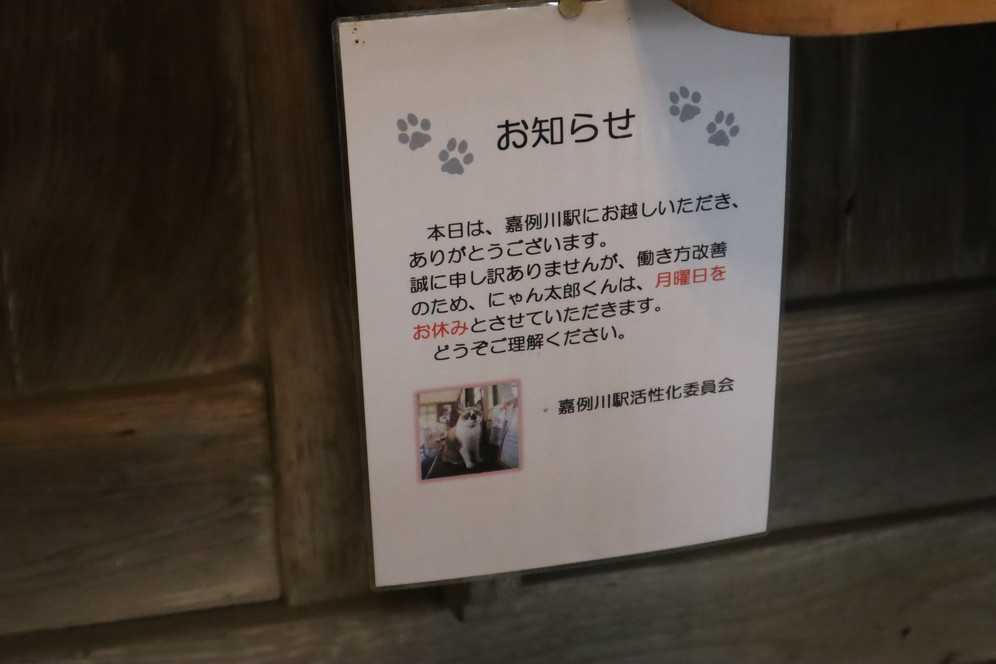 お知らせ
本日は、嘉例川駅にお越しいただき、
ありがとうございます。
誠に申し訳ありませんが、働き方改善
のため、にゃん太郎くんは、月曜日を
お休みとさせていただきます。
どうぞご理解ください。
嘉例川駅活性化委員会